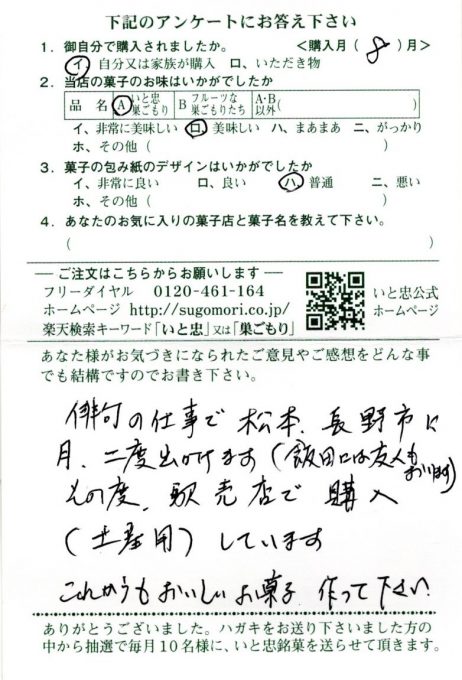 下記のアンケートにお答え下さい
1. 御自分で購入されましたか。 <購入月( 8 )月>
イ、自分又は家族が購入 ロ、いただき物
2. 当店の菓子のお味はいかがでしたか
品 名 A いと忠巣ごもり B フルーツな巣ごもりたち A・B以外( )
イ、非常に美味しい ロ、美味しい ハ、まあまあ ニ、がっかり
ホ、その他( )
3. 菓子の包み紙のデザインはいかがでしたか
イ、非常に良い ロ、良い ハ、普通 ニ、悪い
ホ、その他( )
4. あなたのお気に入りの菓子店と菓子名を教えて下さい。
( )
ご注文はこちらからお願いします
フリーダイヤル 0120-461-164
ホームページ http://sugomori.co.jp/
楽天検索キーワード「いと忠」又は「巣ごもり」
いと忠公式
ホームページ
あなた様がお気づきになられたご意見やご感想をどんな事
でも結構ですのでお書き下さい。
俳句の仕事で 松本、長野市に
月、二度出かけます(飯田には友人もおります)
その度、駅売店で 購入
(土産用)しています
これからもおいしいお菓子 作って下さい
ありがとうございました。ハガキをお送り下さいました方の
中から抽選で毎月10名様に、いと忠銘菓を送らせて頂きます。